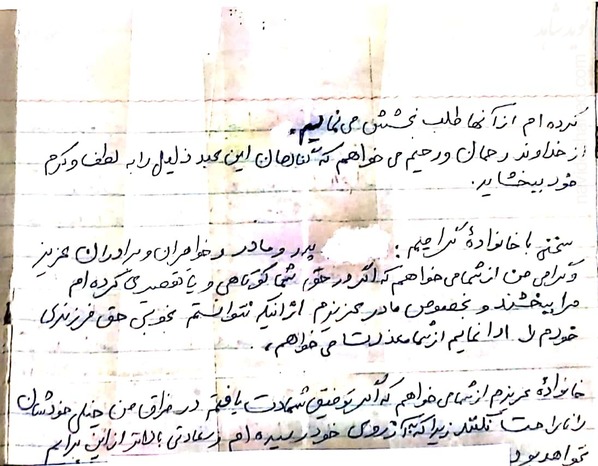 کرده ام از آنها طلب بخشش می نمایم.
از خداوند رحمان و رحیم می خواهم که گناهان این عبد ذلیل را به لطف و کرم
خود ببخشاید.
سخنی با خانوادهٔ گرامیم: پدر و مادر و خواهران و برادران عزیز
و گرامی من از شما می خواهم که اگر در حق شما کوتاهی و یا تقصیری کرده ام
مرا ببخشید و بخصوص مادر عزیزم از اینکه نتوانستم بخوبی حق فرزندی
خودم را ادا نمایم از شما معذرت می خواهم.
خانوادهٔ عزیزم از شما می خواهم که اگر توفیق شهادت یافتم در فراق من خیلی خودتان
را ناراحت نکنید زیرا که به آرزوی خود رسیده ام و سعادتی بالاتر از این برایم
نخواهد بود